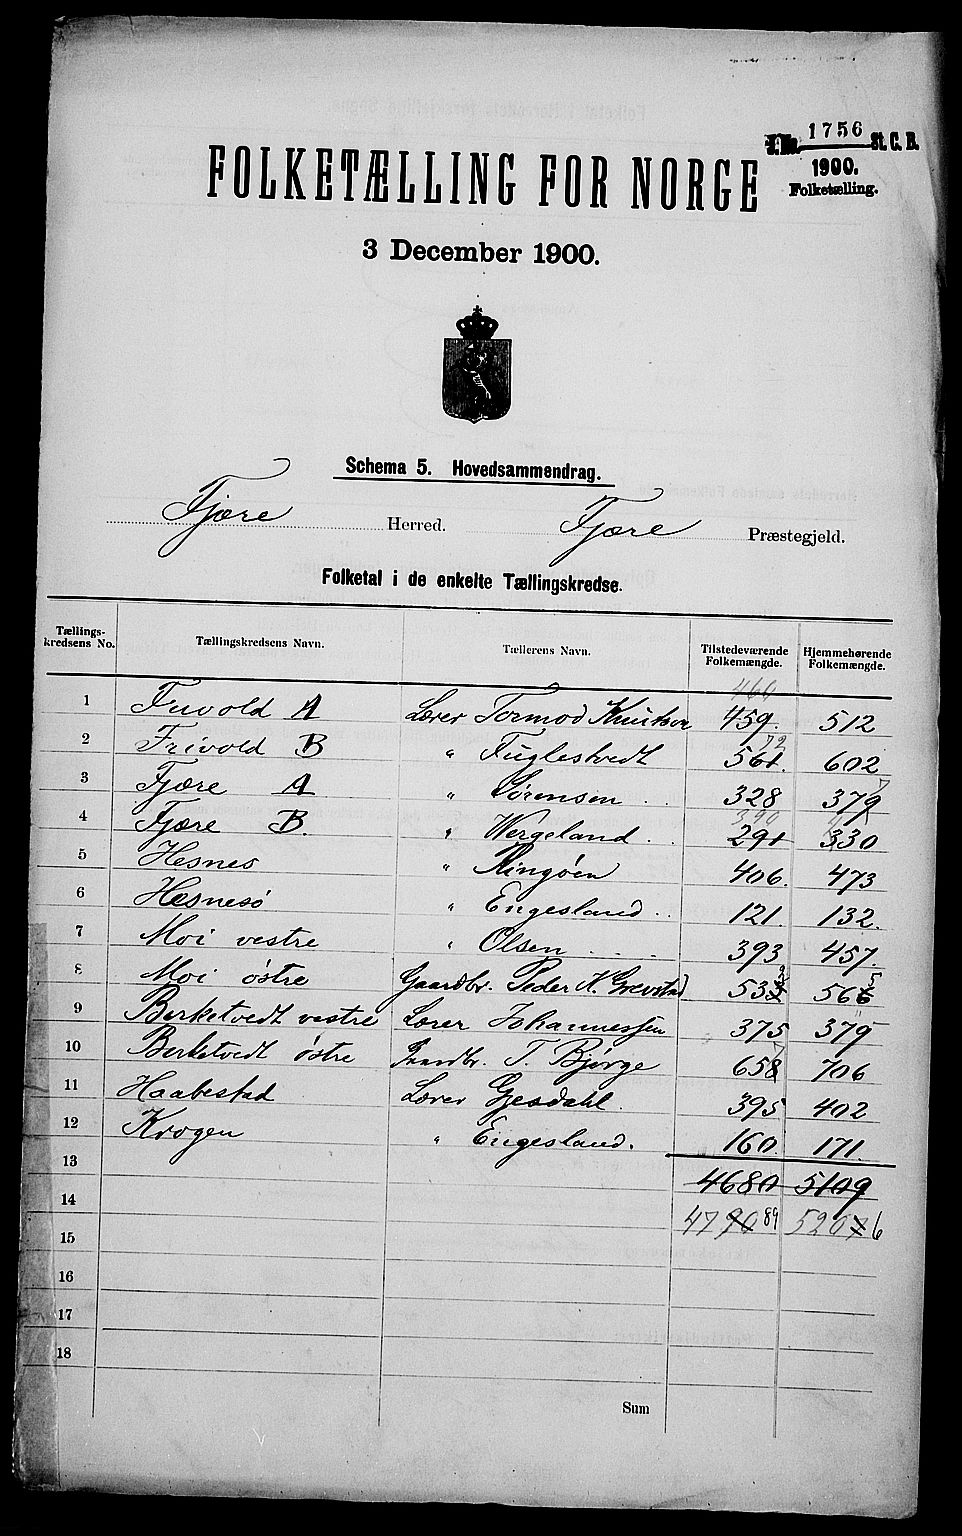 J.No. 1756 St. C. B.
1900.
Folketælling.
FOLKETÆLLING FOR NORGE
3 December 1900.
Schema 5. Hovedsammendrag.
Fjære Herred. Fjære Præstegjeld.
Folketal i de enkelte Tællingskredse.
Tællings-kredsens No. Tællingskredsens Navn. Tællerens Navn. Tilstedeværende Folkemængde. Hjemmehørende Folkemængde.
460
1 Frivold A Lærer Tormod Knutsen 459. 512
72
2 Frivold B " Fuglestvedt 561. 602
7
3 Fjære A " Sørensen 328 379
390
4 Fjære B. " Wergeland 291 330
5 Hesnes " Ringøen 406. 473
6 Hesnesø " Engesland 121. 132.
7 Moi vestre " Olsen 393 457.
8 Moi østre Gaardbr. Peder K. Grevstad 533 566 5
9 Berketvedt vestre Lærer Johannessen 375 379
7
10 Berketvedt østre Gaardbr. T. Bjørge 658 706
11 Haabestad Lærer Gjesdahl. 395 402
12 Krogen " Engesland. 160. 171.
13 4680 5109
14 4790 89 5207 6
15
16
17
18
Sum